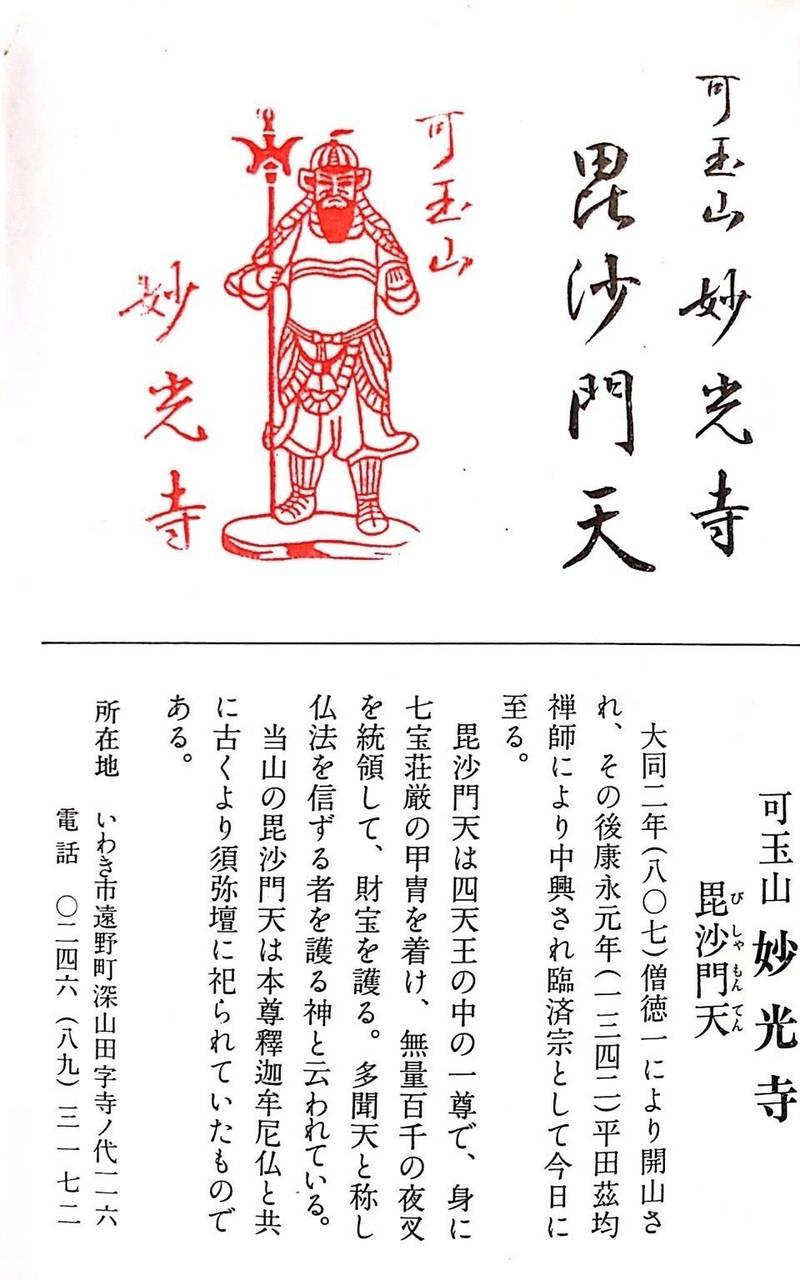 可玉山 妙光寺
毘沙門天
可玉山
妙光寺
可玉山 妙光寺
毘沙門天
びしゃもんてん
大同二年(八〇七)僧徳一により開山さ
れ、その後康永元年(一三四二)平田茲均
禅師により中興され臨済宗として今日に
至る。
毘沙門天は四天王の中の一尊で、身に
七宝荘厳の甲冑を着け、無量百千の夜叉
を統領して、財宝を護る。多聞天と称し
仏法を信ずる者を護る神と云われている。
当山の毘沙門天は本尊釋迦牟尼仏と共
に古くより須弥壇に祀られていたもので
ある。
所在地 いわき市遠野町深山田字寺ノ代一一六
電話 〇二四六(八九)三一七二